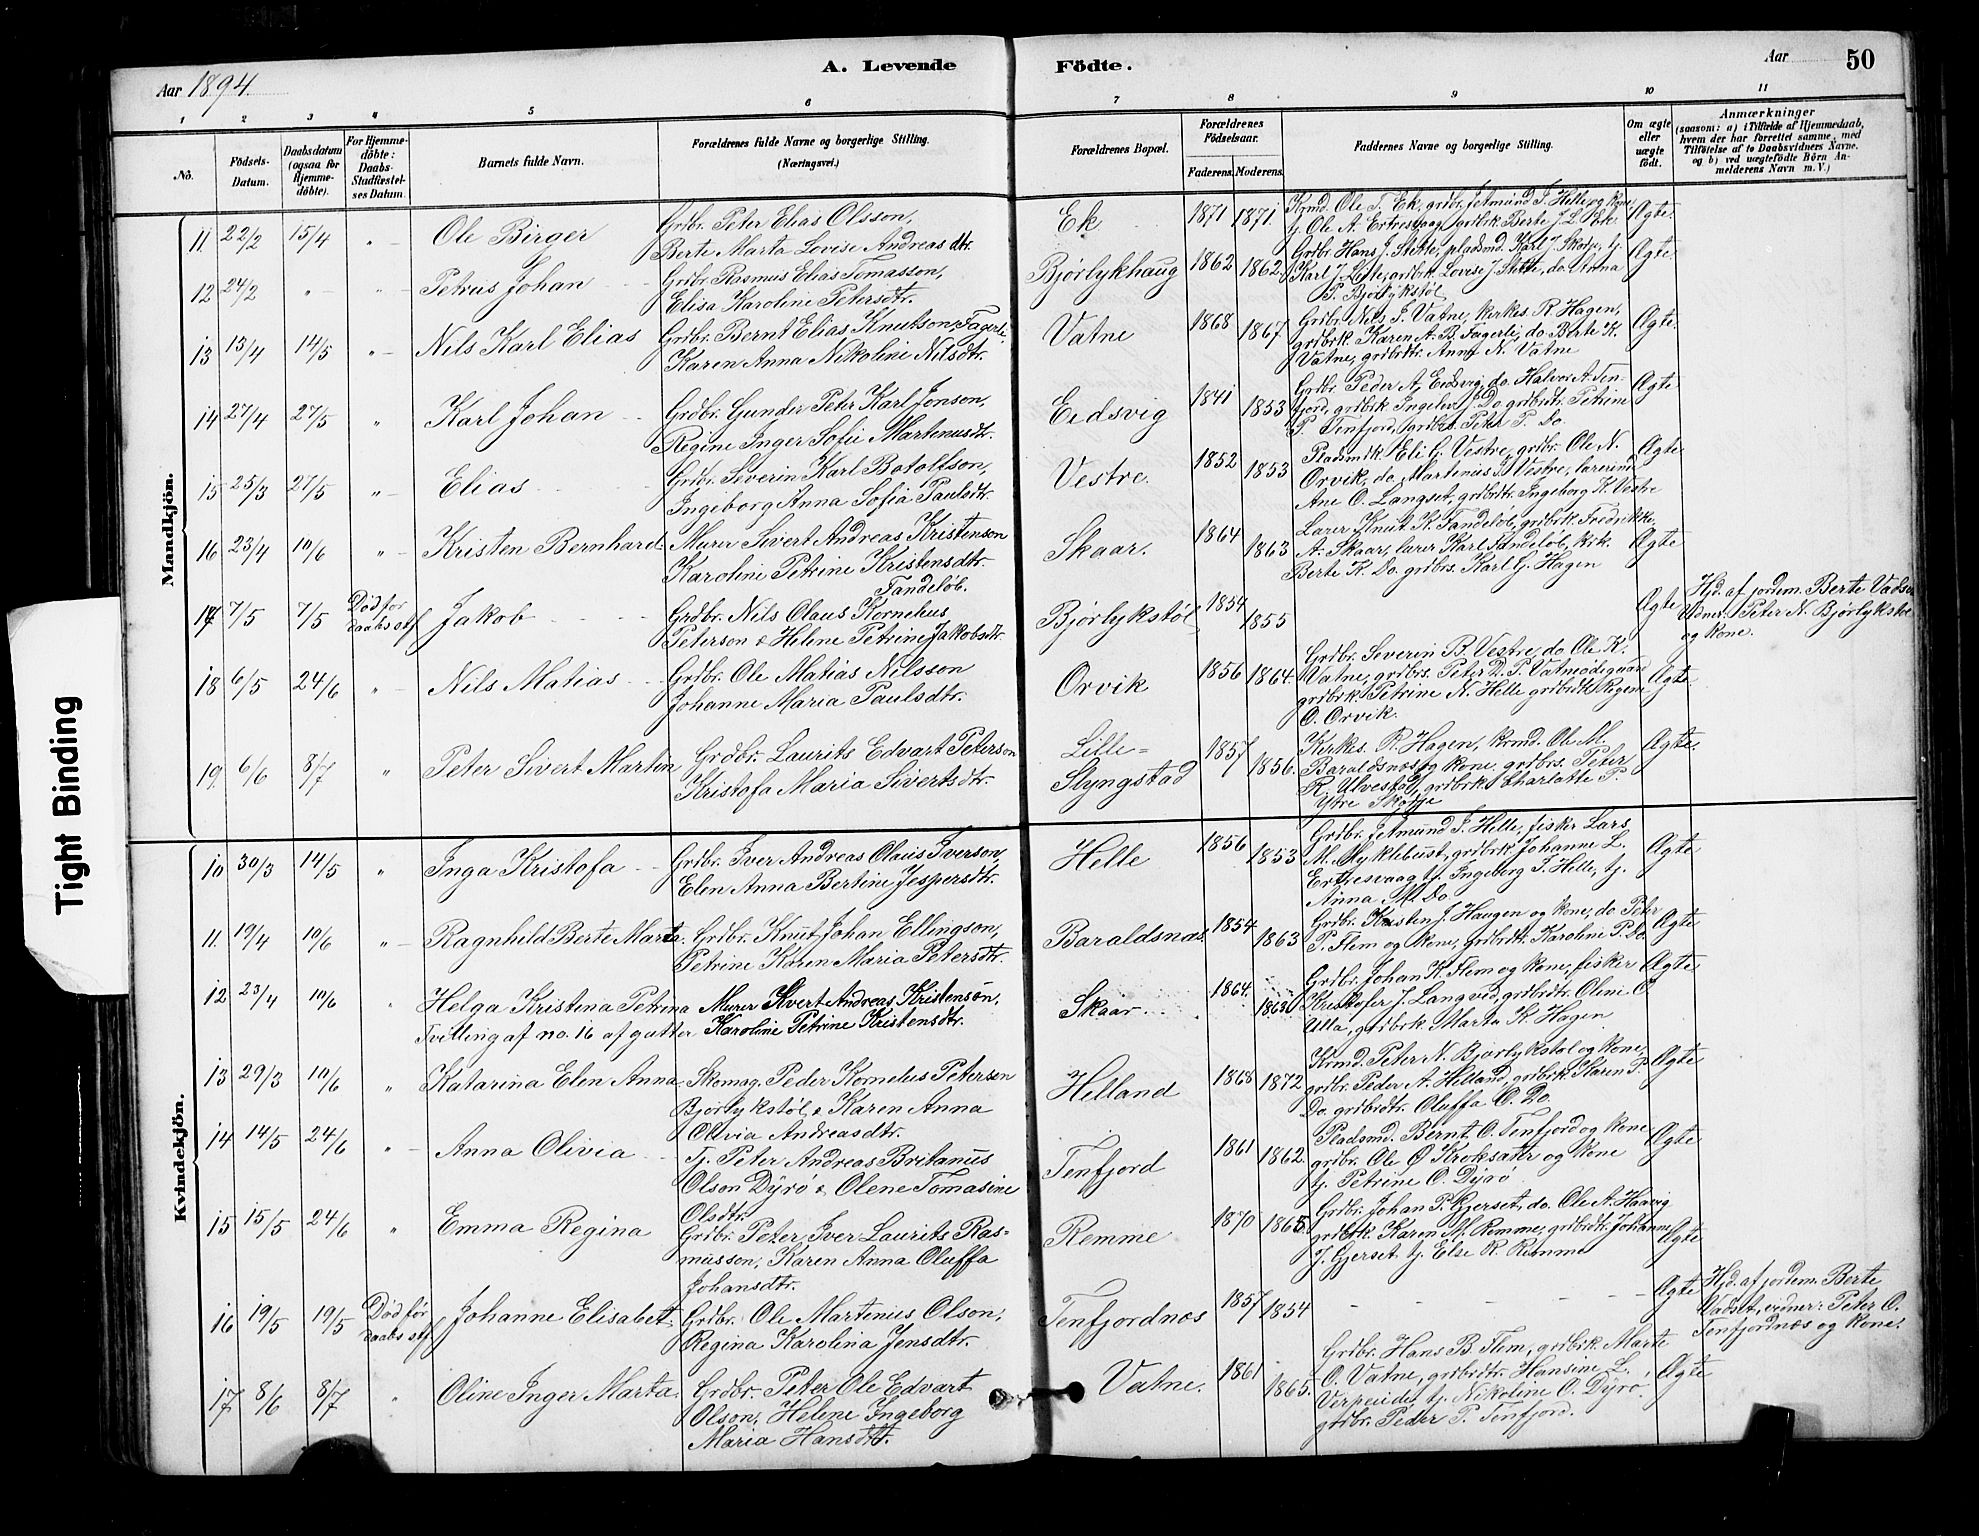 Aar 1894
A. Levende
Födte.
Aar
50
1 2 3 4 5 6 7 8 9 10 11
No.
Födsels-Datum.
Daabsdatum (ogsaa for Hjemme-döbte).
For Hjemme-döbte: Daabs-Stadfæstel-ses Datum.
Barnets fulde Navn.
Forældrenes fulde Navne og borgerlige Stilling.
(Næringsvei.)
Forældrenes Bopæl.
Forældrenes Födselsaar.
Faderens. Moderens.
Faddernes Navne og borgerlige Stilling.
Om ægte eller uægte födt.
Anmærkninger
(saasom: a) i Tilfælde af Hjemmedaab, hvem der har forrettet samme, med Tilföielse af to Daabsvidners Navne. og b) ved uægtefödte Börn An-melderens Navn m.V.)
Mandkjön.
11 22/2 15/4 " Ole Birger
Grdbr. Peter Elias Olsson,
Berte Marta Lovise Andreasdtr.
Ek 1871 1871.
Krmd. Ole T. Ek, grdbr. Jetmund J. Helle og kone,
tj. Ole A. Ertresvaag, grdbrk. Berte J. L.
Ægte.
12 24/2 " " Petrus Johan
Grdbr. Rasmus Elias Tomasson,
Elisa Karoline Petersdtr.
Bjørlykhaug 1862 1862.
Grdbr. Hans J. Slette, pladsmd. Karl J. Skotje, tj.
Karl J. Slette, grdbrk. Lovise J. Slette, do. Anna
P. Bjørlykstøl
Ægte.
13 13/4 14/5 " Nils Karl Elias
Grdbr. Bernt Elias Knutson Fagerli,
Karen Anna Nikoline Nilsdtr.
Vatne 1868 1867
Grdbr. Nils J. Vatne, kirkes. R. Hagen,
grdbrk. Karen A. B. Fagerli, do. Berte K.
Vatne, grdbrdtr. Anna N. Vatne
Ægte.
14 27/4 27/5 " Karl Johan
Grdbr. Gunder Peter Karl Jonson,
Regine Inger Sofie Martinusdtr.
Eidsvig 1841 1853
Grdbr. Peder A. Eidsvig, do. Halvor A. Ten-
fjord, grdbrk. Ingelev J. Do. grdbrdtr. Petrine
P. Tenfjord, grdbrs. Peter P. Do.
Ægte.
15 25/3 27/5 " Elias
Grdbr. Severin Karl Botolfson,
Ingeborg Anna Sofia Paulsdtr.
Vestre. 1852 1853
Pladsmdk. Eli G. Vestre, grdbr. Ole N.
Orvik, do. Martinus J. Vestre, lærerinde
Ane O. Langset, grdbrdtr. Ingeborg K. Vestre
Ægte
16 23/4 10/6 " Kristen Bernhard
Murer Sivert Andreas Kristenson
Karoline Petrine Kristensdtr.
Tandeløb.
Skaar. 1864 1863
Lærer Knut K. Tandeløb, grdbrk. Fredrikke
A. Skaar, lærer Karl Tandeløb, krk.
Berte K. Do. grdbrs. Karl G. Hagen
Ægte
17 7/5 7/5 Død før
daabs stf. Jakob
Grdbr. Nils Claus Kornelius
Peterson & Helene Petrine Jakobsdtr.
Bjørlykstøl 1854 1855
Ægte
Hjd. af jordem. Berte Vadset
Vidner: Peter N. Bjørlykstøl
og kone.
18 6/5 24/6 " Nils Matias
Grdbr. Ole Matias Nilsson
Johanne Maria Paulsdtr.
Orvik 1856 1864.
Grdbr. Severin B. Vestre, do. Ole K.
Vatne, grdbrs. Peter D. P. Vatnødegaard
grdbrk. Petrine N. Helle grdbrdtr. Regine
O. Orvik.
Ægte.
19. 6/6 8/7 " Peter Sivert Martin
Grdbr. Laurits Edvart Peterson
Kristofa Maria Sivertsdtr.
Lille-
Slyngstad 1857 1856.
Kirkes. R. Hagen, krmd. Ole M.
Baraldsnæs og kone, grdbrs. Peter
R. Ulvestad, grdbrk. Charlotte P.
Ytre Skotje
Ægte.
Kvindekjön.
10 30/3 14/5 " Inga Kristofa
Grdbr. Iver Andreas Olaus Iverson,
Elen Anna Bertine Jespersdtr.
Helle 1856 1853
Grdbr. Jetmund J. Helle, fisker Lars
M. Myklebust, grdbrk. Johanne L.
Ertresvaag tj. Ingeborg J. Helle, tj.
Anna M. Do
Ægte
11. 19/4 10/6 " Ragnhild Berte Marta.
Grdbr. Knut Johan Ellingson,
Petrine Karen Maria Petersdtr.
Baraldsnæs. 1854 1863
Grdbr. Kristen J. Haugen og kone, do. Peter
P. Flem og kone, grdbrdtr. Karoline P. Do.
Ægte
12 23/4 10/6 " Helga Kristina Petrina
Tvilling af no. 16 af gutter
Murer Sivert Andreas Kristenson,
Karoline Petrine Kristensdtr.
Skaar 1864. 1863
Grdbr. Johan K. Flem og kone, fisker
Kristofer J. Langvid, grdbrdtr. Oline O.
Ulla, grdbrk. Marta K. Hagen
Ægte
13 29/3 10/6 " Katarina Elen Anna
Skomag. Peder Kornelus Peterson
Bjørlykstøl, & Karen Anna
Olivia Andreasdtr.
Helland 1868 1872
Krmd. Peter N. Bjørlykstøl og kone,
grdbr. Peder A. Helland, grdbrk. Karen P.
Do. grdbrdtr. Oluffa O. Do.
Ægte
14 14/5 24/6 " Anna Olivia
Tj. Peter Andreas Britanus
Olson Dyrø & Olene Tomasine
Olsdtr.
Tenfjord 1861 1862.
Pladsmd. Bernt O. Tenfjord og kone
grdbr. Ole Ø. Kroksæter og kone
tj. Petrine O. Dyrø
Ægte
15 15/5 24/6 " Emma Regina
Grdbr. Peter Iver Laurits Ras-
musson, Karen Anna Oluffa
Johansdtr.
Remme 1870 1865.
Grdbr. Johan P. Gjerset, do. Ole A. Haavig
grdbrk. Karen M. Remme, grdbrdtr. Johanne
J. Gjerset, tj. Else R. Remme
Ægte
16 19/5 19/5 Død før
daabs stf. Johanne Elisabet
Grdbr. Ole Martinus Olson,
Regina Karolina Jensdtr.
Tenfjordnæs 1857 1854
Ægte
Hjd. af jordem. Berte
Vadset, vidner: Peter O.
Tenfjordnæs og kone.
17 8/6 8/7 " Oline Inger Marta.
Grdbr. Peter Ole Edvart
Olson, Helene Ingeborg
Maria Hansdtr.
Vatne. 1861 1865.
Grdbr. Hans B. Flem, grdbrk. Marte
O. Vatne, grdbrdtr. Hansine L.
tj. Nikoline O. Dyrø.
grdbr. Peder P. Tenfjord.
Ægte
Tight Binding